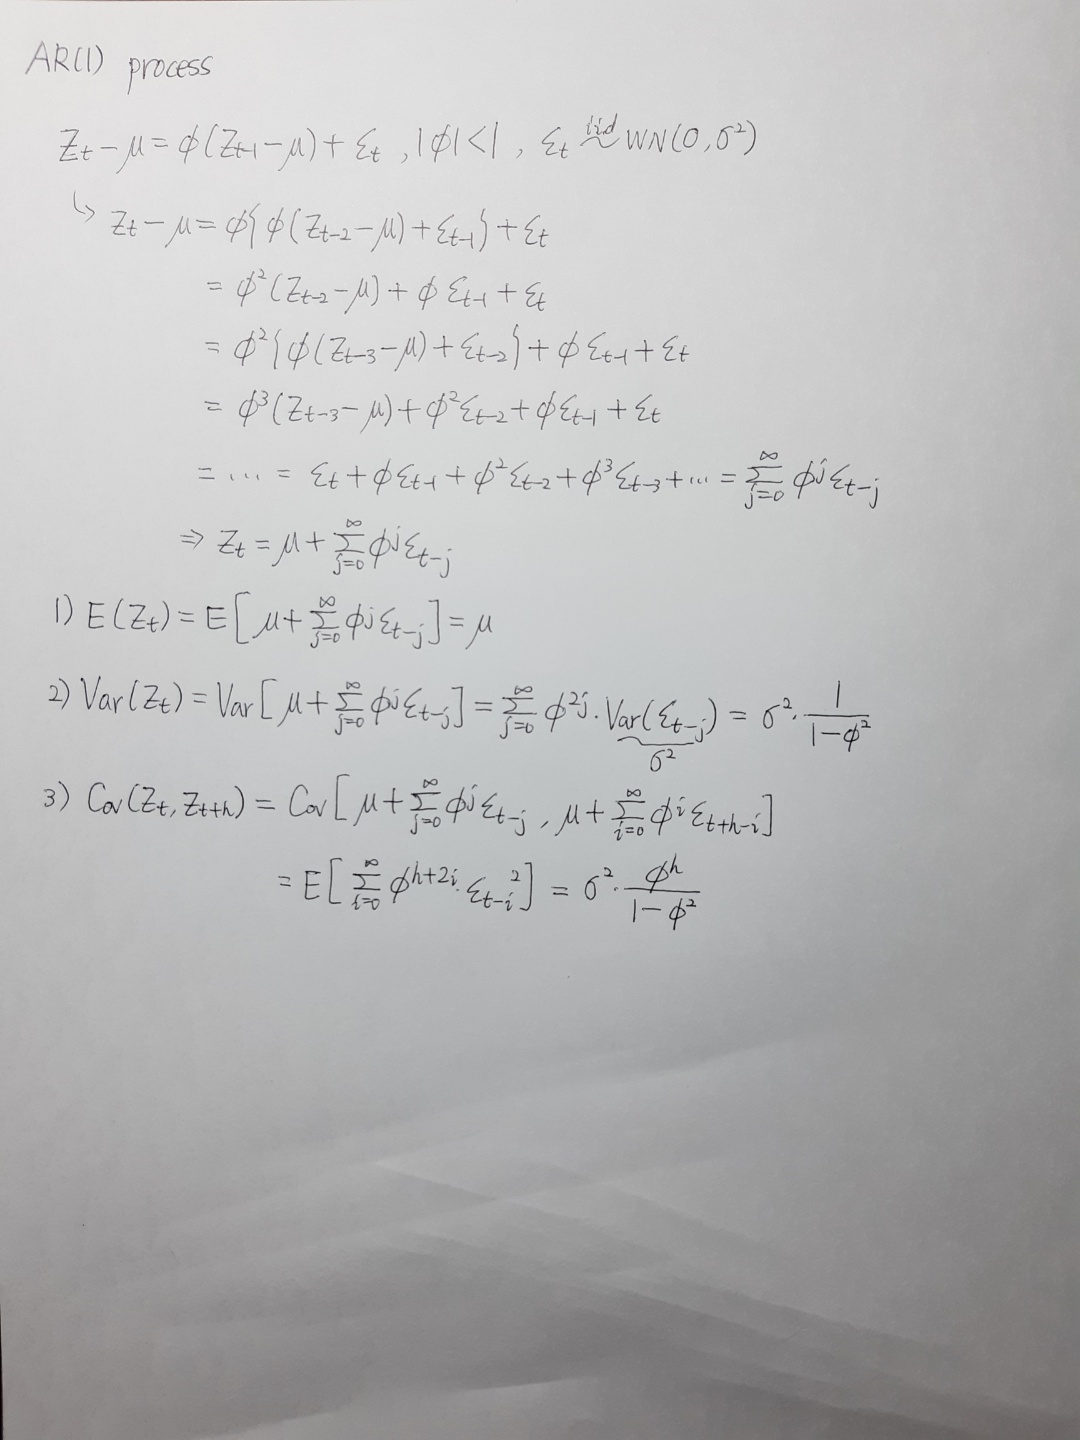 AR(1) process
Z_t − μ = ϕ(Z_{t-1} − μ) + ε_t , |ϕ| < 1 , ε_t ~^{iid} WN(0, σ²)
↳ Z_t − μ = ϕ{ϕ(Z_{t-2} − μ) + ε_{t-1}} + ε_t
= ϕ²(Z_{t-2} − μ) + ϕ ε_{t-1} + ε_t
= ϕ²{ϕ(Z_{t-3} − μ) + ε_{t-2}} + ϕ ε_{t-1} + ε_t
= ϕ³(Z_{t-3} − μ) + ϕ² ε_{t-2} + ϕ ε_{t-1} + ε_t
= ... = ε_t + ϕ ε_{t-1} + ϕ² ε_{t-2} + ϕ³ ε_{t-3} + ... = ∑_{j=0}^{∞} ϕ^j ε_{t-j}
⇒ Z_t = μ + ∑_{j=0}^{∞} ϕ^j ε_{t-j}
1) E(Z_t) = E[μ + ∑_{j=0}^{∞} ϕ^j ε_{t-j}] = μ
2) Var(Z_t) = Var[μ + ∑_{j=0}^{∞} ϕ^j ε_{t-j}] = ∑_{j=0}^{∞} ϕ^{2j} · Var(ε_{t-j}) = σ² · 1/(1−ϕ²)
σ²
3) Cov(Z_t, Z_{t+h}) = Cov[μ + ∑_{j=0}^{∞} ϕ^j ε_{t-j} , μ + ∑_{i=0}^{∞} ϕ^i ε_{t+h-i}]
= E[∑_{i=0}^{∞} ϕ^{h+2i} · ε_{t-i}²] = σ² · ϕ^h/(1−ϕ²)